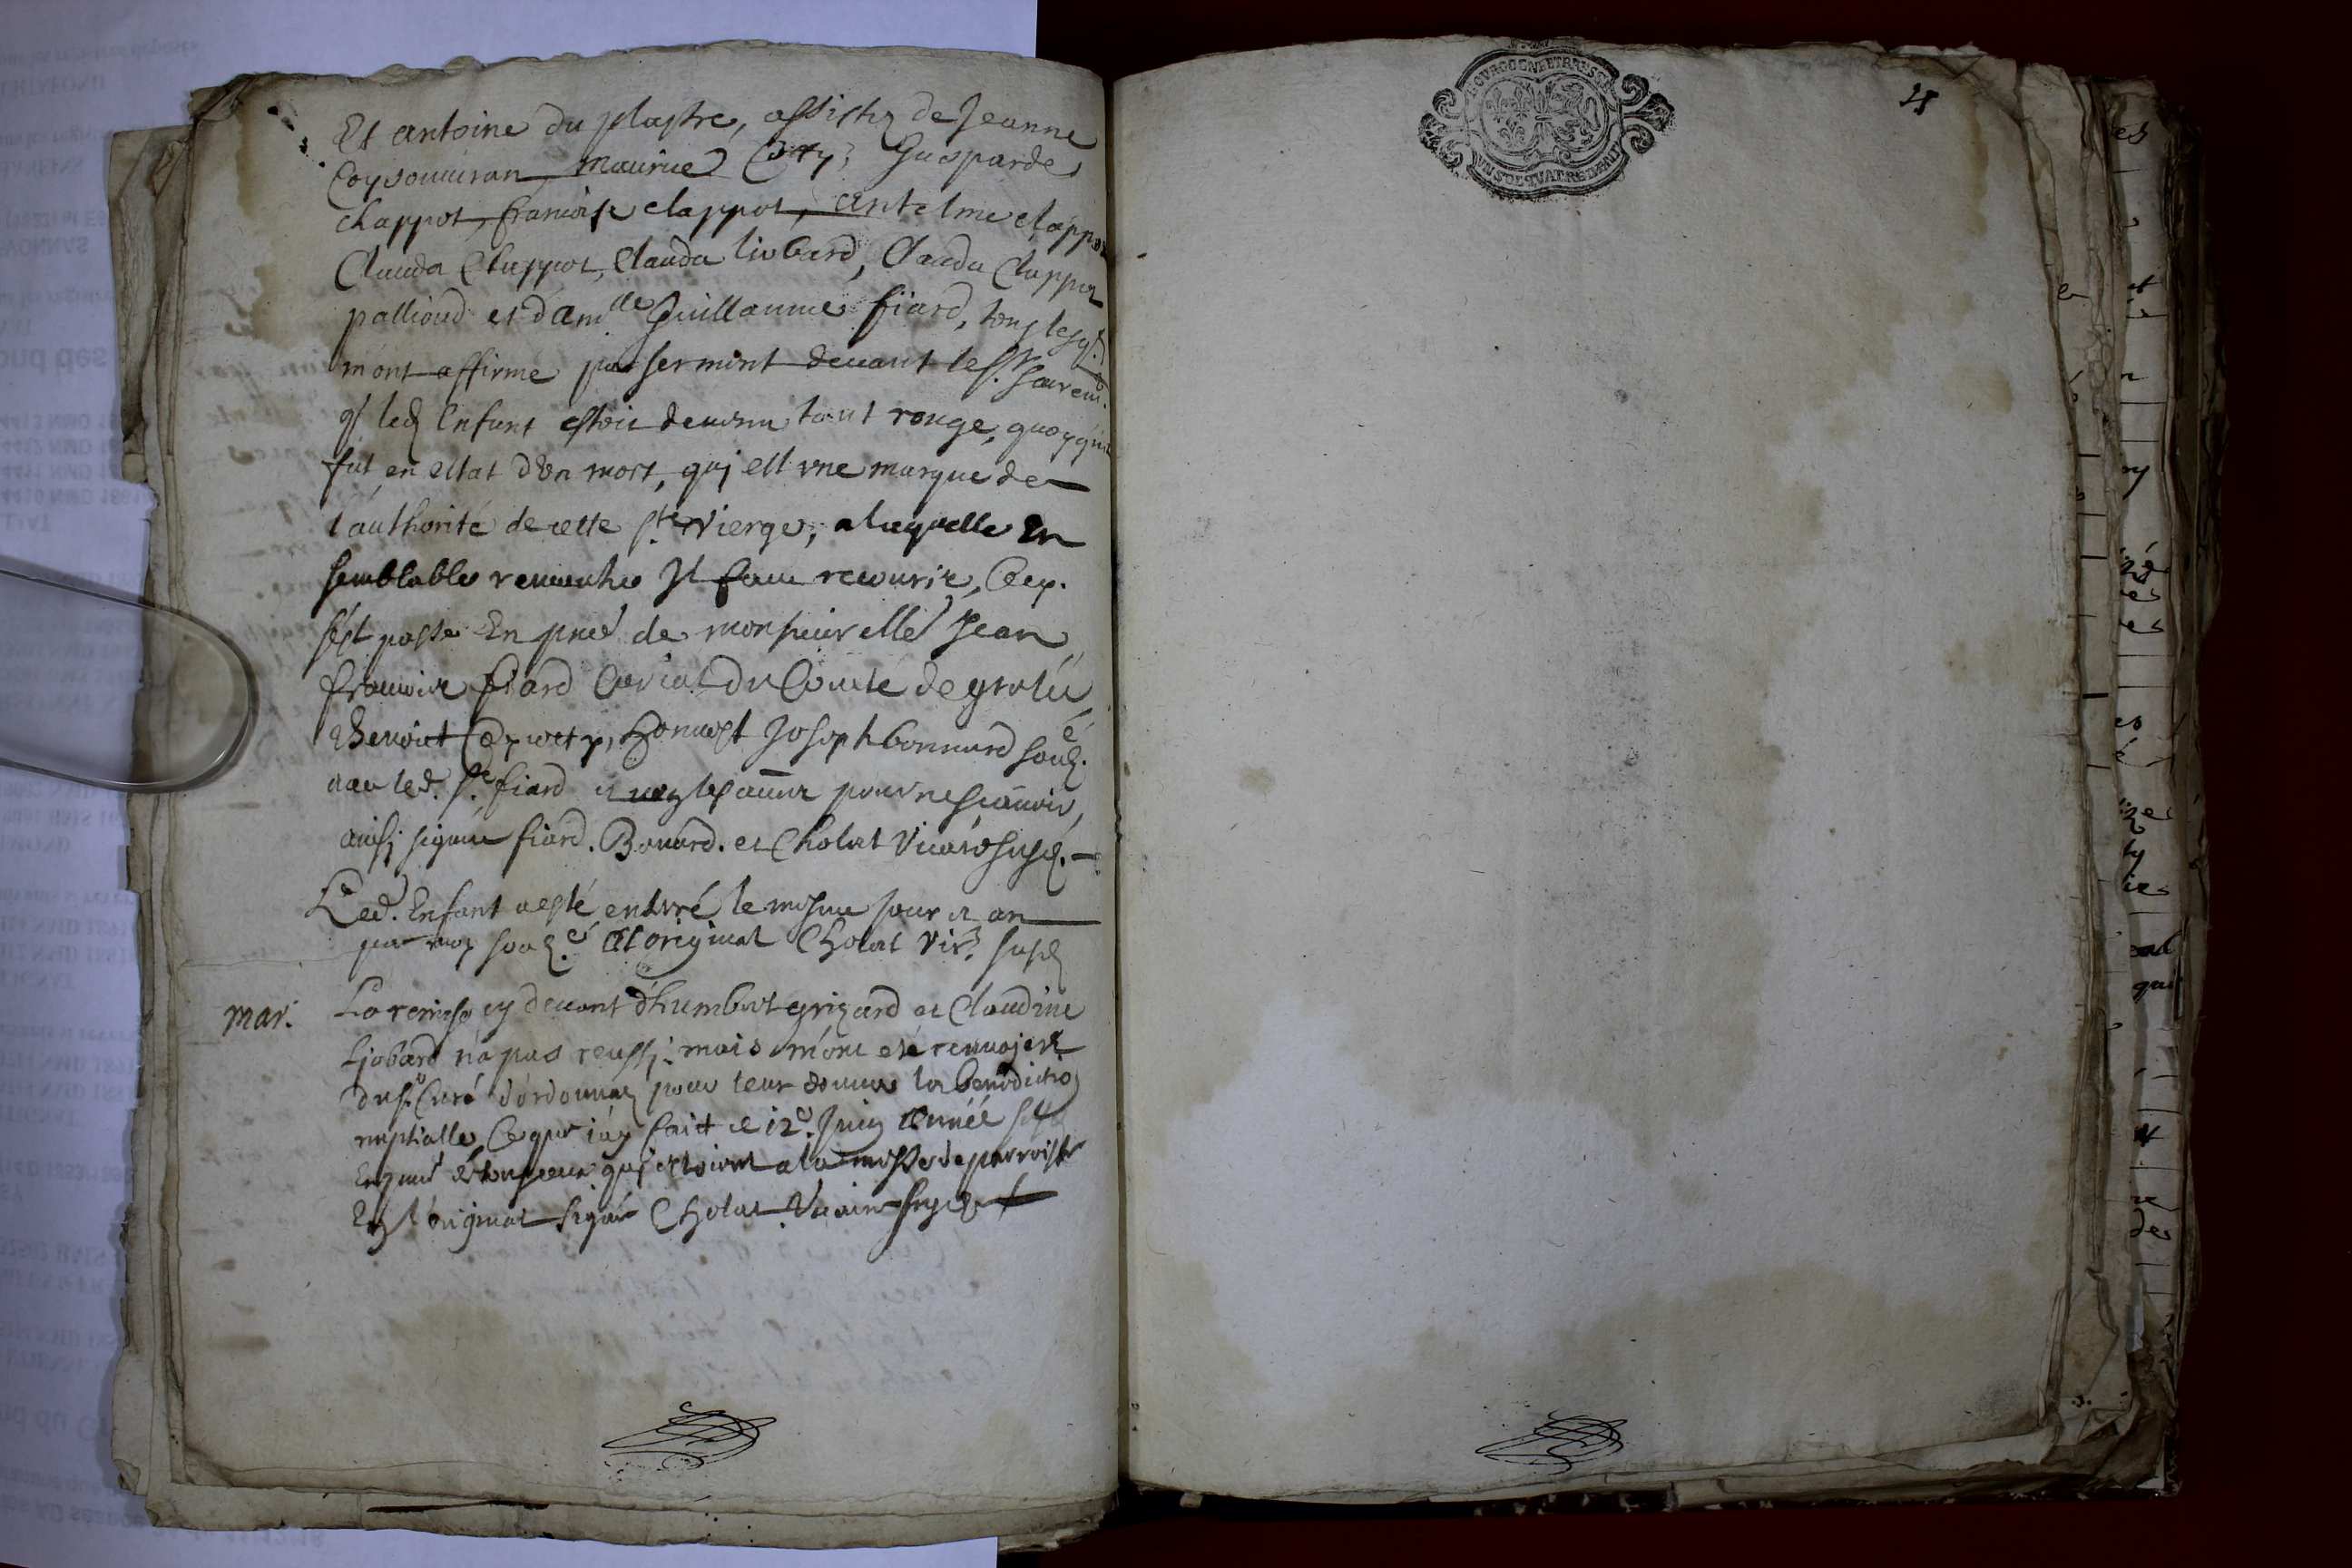 Et antoine du plastre, assistez de Jeanne
Coysouuiran, Maurice Cotty, Gusparde
chappot, francoise clappot, antelme clappot
Clauda Chappot, Clauda liobard, Clauda Clappot
pallioud et dam.lle Guillaume fiard, tous lesq.
m'ont affirme par serment deuant le s.r
q led Enfant estoit deuenu tout rouge, quoyquil
fut en estat d'vn mort, qui est vne marque de
l'authorité de cette s.te Vierge, a laquelle En
semblable Il faut recourir, Cecy
s'est passe En pnce de monsieur Me Jean
francois fiard du Comté de grolée
Benoict honnest Joseph bonnard souz.é
auec led. s.r fiard et non les autres pour ne scauoir,
ainsj signé fiard. Bonard. et Cholat Vicaire susd. -
Led. Enfant a esté enterré le mesme jour et an
par moy souz.é Cholat vic.re susd
mar. La remise cy deuant d'humbert grizard et Claudine
Ljobard n'a pas reussj: mais m'ont esté renuojez
du s.r Curé d'ordonnaz pour leur donner la benedictio
nuptialle, Ce que iay fait ce 12.e Juin année
En pnce de tous ceux quj estoient a la messe de parroisse
En l'original signé Cholat Vicaire susd
BOVRGOGNE ET BRESSE
VN SOL QVATRE DEN